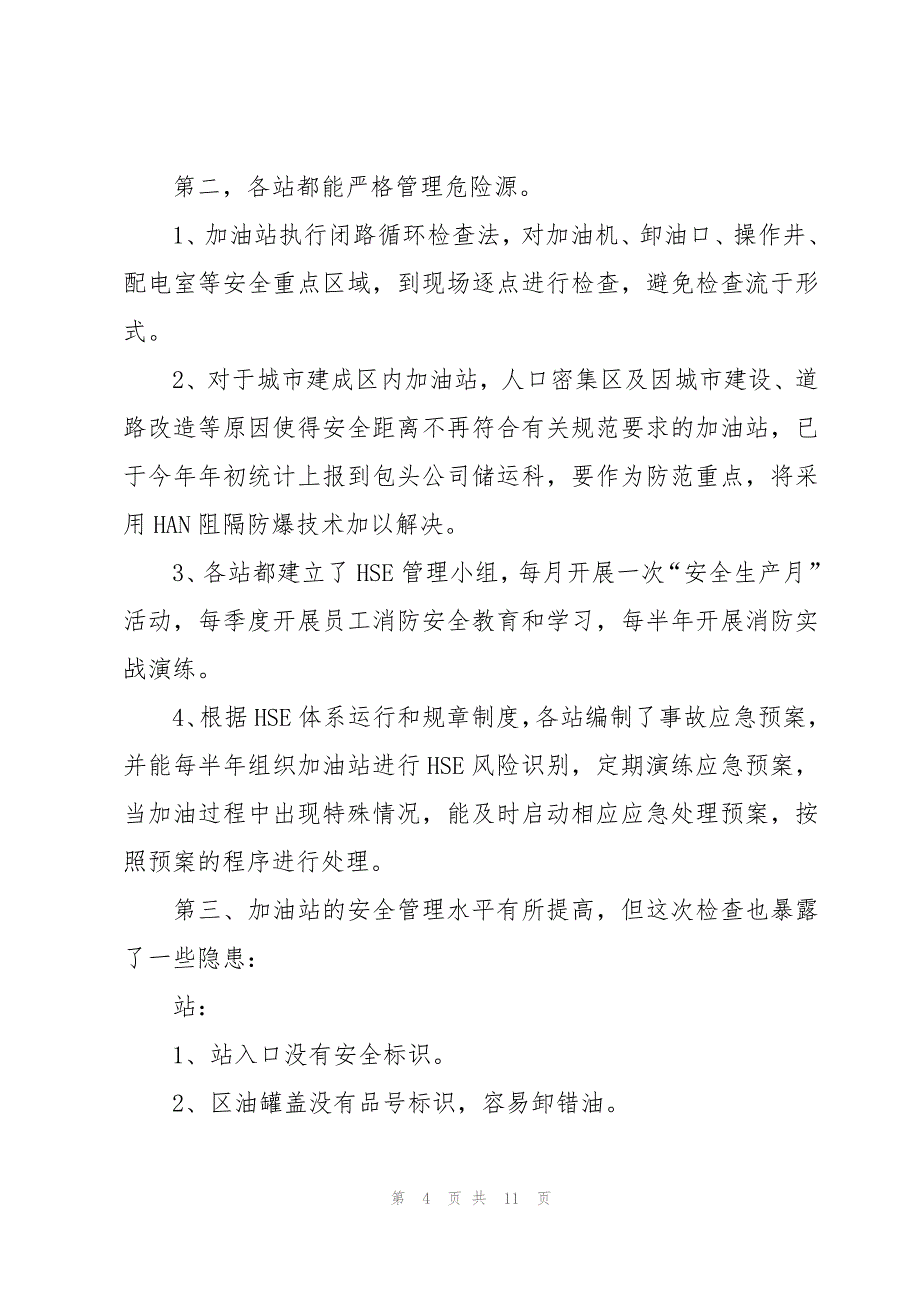 第二，各站都能严格管理危险源。
1、加油站执行闭路循环检查法，对加油机、卸油口、操作井、
配电室等安全重点区域，到现场逐点进行检查，避免检查流于形
式。
2、对于城市建成区内加油站，人口密集区及因城市建设、道
路改造等原因使得安全距离不再符合有关规范要求的加油站，已
于今年年初统计上报到包头公司储运科，要作为防范重点，将采
用 HAN 阻隔防爆技术加以解决。
3、各站都建立了 HSE 管理小组，每月开展一次“安全生产月”
活动，每季度开展员工消防安全教育和学习，每半年开展消防实
战演练。
4、根据 HSE 体系运行和规章制度，各站编制了事故应急预案，
并能每半年组织加油站进行 HSE 风险识别，定期演练应急预案，
当加油过程中出现特殊情况，能及时启动相应应急处理预案，按
照预案的程序进行处理。
第三、加油站的安全管理水平有所提高，但这次检查也暴露
了一些隐患：
站：
1、站入口没有安全标识。
2、区油罐盖没有品号标识，容易卸错油。
第 4 页 共 11 页